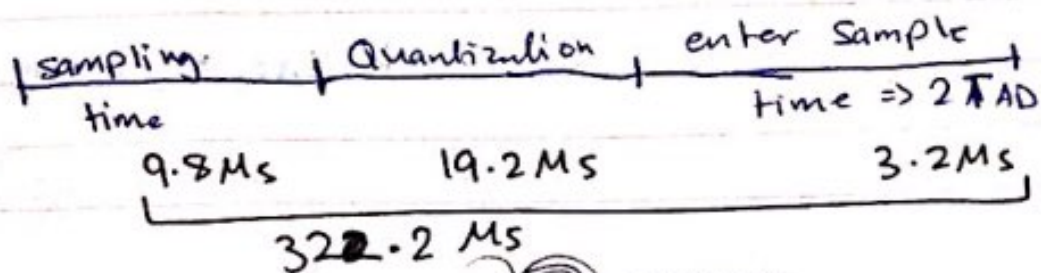 sampling. Quantization enter Sample
time time => 2 TAD
9.8 Ms 19.2 Ms 3.2 Ms
322.2 Ms